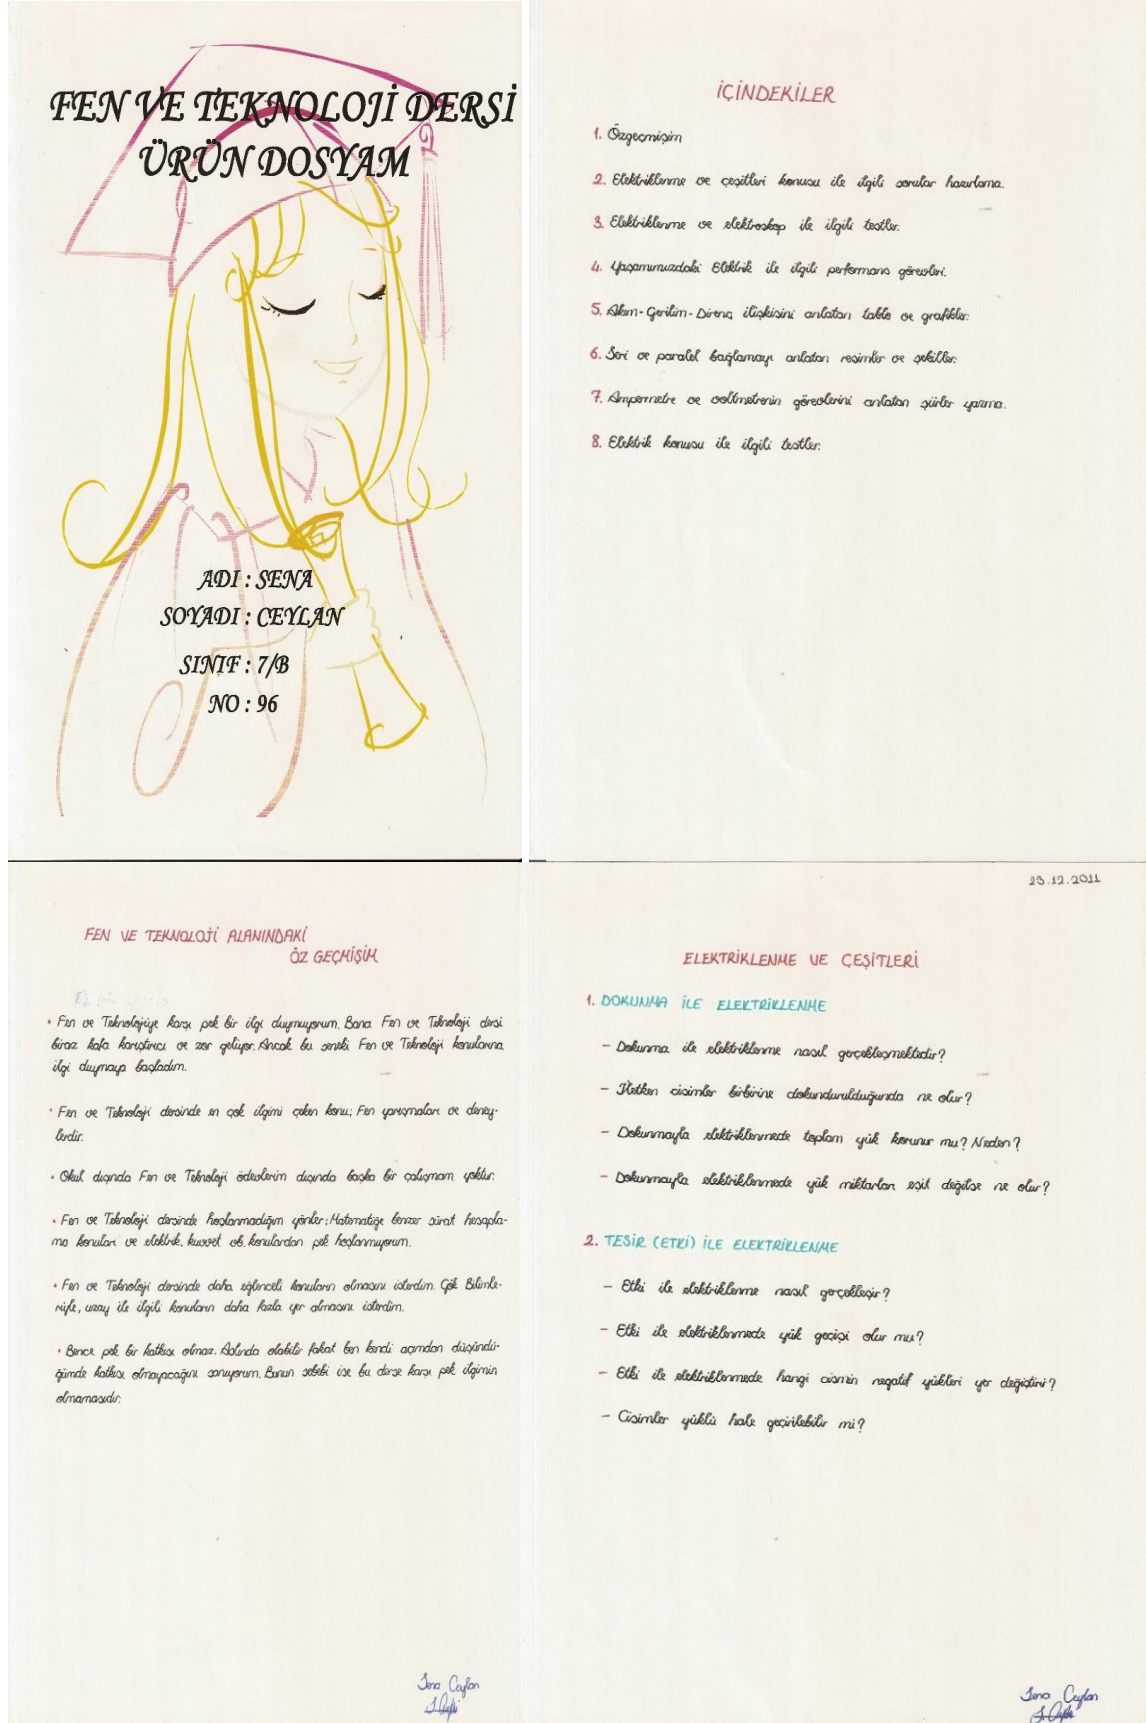 FEN VE TEKNOLOJİ DERSİ
ÜRÜN DOSYAM
ADI : SENA
SOYADI : CEYLAN
SINIF : 7/B
NO : 96
İÇİNDEKİLER
1. Özgeçmişim
2. Elektriklenme ve çeşitleri konusu ile ilgili sorular hazırlama.
3. Elektriklenme ve elektroskop ile ilgili testler.
4. Yaşamımızdaki Elektrik ile ilgili performans görevleri.
5. Akım-Gerilim-Direnç ilişkisini anlatan tablo ve grafikler.
6. Seri ve paralel bağlamayı anlatan resimler ve şekiller.
7. Ampermetre ve voltmetrenin görevlerini anlatan şiirler yazma.
8. Elektrik konusu ile ilgili testler.
FEN VE TEKNOLOJİ ALANINDAKİ
ÖZ GEÇMİŞİM
• Fen ve Teknolojiye karşı pek bir ilgi duymuyorum. Bana Fen ve Teknoloji dersi
biraz kafa karıştırıcı ve zor geliyor. Ancak bu seneki Fen ve Teknoloji konularına
ilgi duymaya başladım.
• Fen ve Teknoloji dersinde en çok ilgimi çeken konu; Fen yarışmaları ve deney-
lerdir.
• Okul dışında Fen ve Teknoloji ödevlerim dışında başka bir çalışmam yoktur.
• Fen ve Teknoloji dersinde hoşlanmadığım yönler; Matematiğe benzer sürat hesapla-
ma konuları ve elektrik, kuvvet vb. konulardan pek hoşlanmıyorum.
• Fen ve Teknoloji dersinde daha eğlenceli konuların olmasını isterdim. Gök Bilimle-
riyle, uzay ile ilgili konuların daha fazla yer almasını isterdim.
• Bence pek bir katkısı olmaz. Aslında olabilir fakat ben kendi açımdan düşündü-
ğümde katkısı olmayacağını sanıyorum. Bunun sebebi ise bu derse karşı pek ilgimin
olmamasıdır.
Sena Ceylan
23.12.2011
ELEKTRİKLENME VE ÇEŞİTLERİ
1. DOKUNMA İLE ELEKTRİKLENME
- Dokunma ile elektriklenme nasıl gerçekleşmektedir?
- İletken cisimler birbirine dokundurulduğunda ne olur?
- Dokunmayla elektriklenmede toplam yük korunur mu? Neden?
- Dokunmayla elektriklenmede yük miktarları eşit değilse ne olur?
2. TESİR (ETKİ) İLE ELEKTRİKLENME
- Etki ile elektriklenme nasıl gerçekleşir?
- Etki ile elektriklenmede yük geçişi olur mu?
- Etki ile elektriklenmede hangi cismin negatif yükleri yer değiştirir?
- Cisimler yüklü hale geçirilebilir mi?
Sena Ceylan